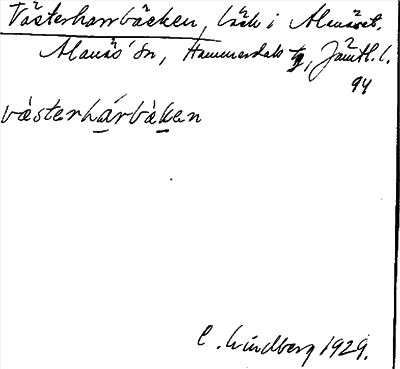 Västerharrbäcken, bäck i Alanäset.
Alanäs sn, Hammerdals tg, Jämtl. l.
94
västerhárbàken
C. Lindberg 1929.